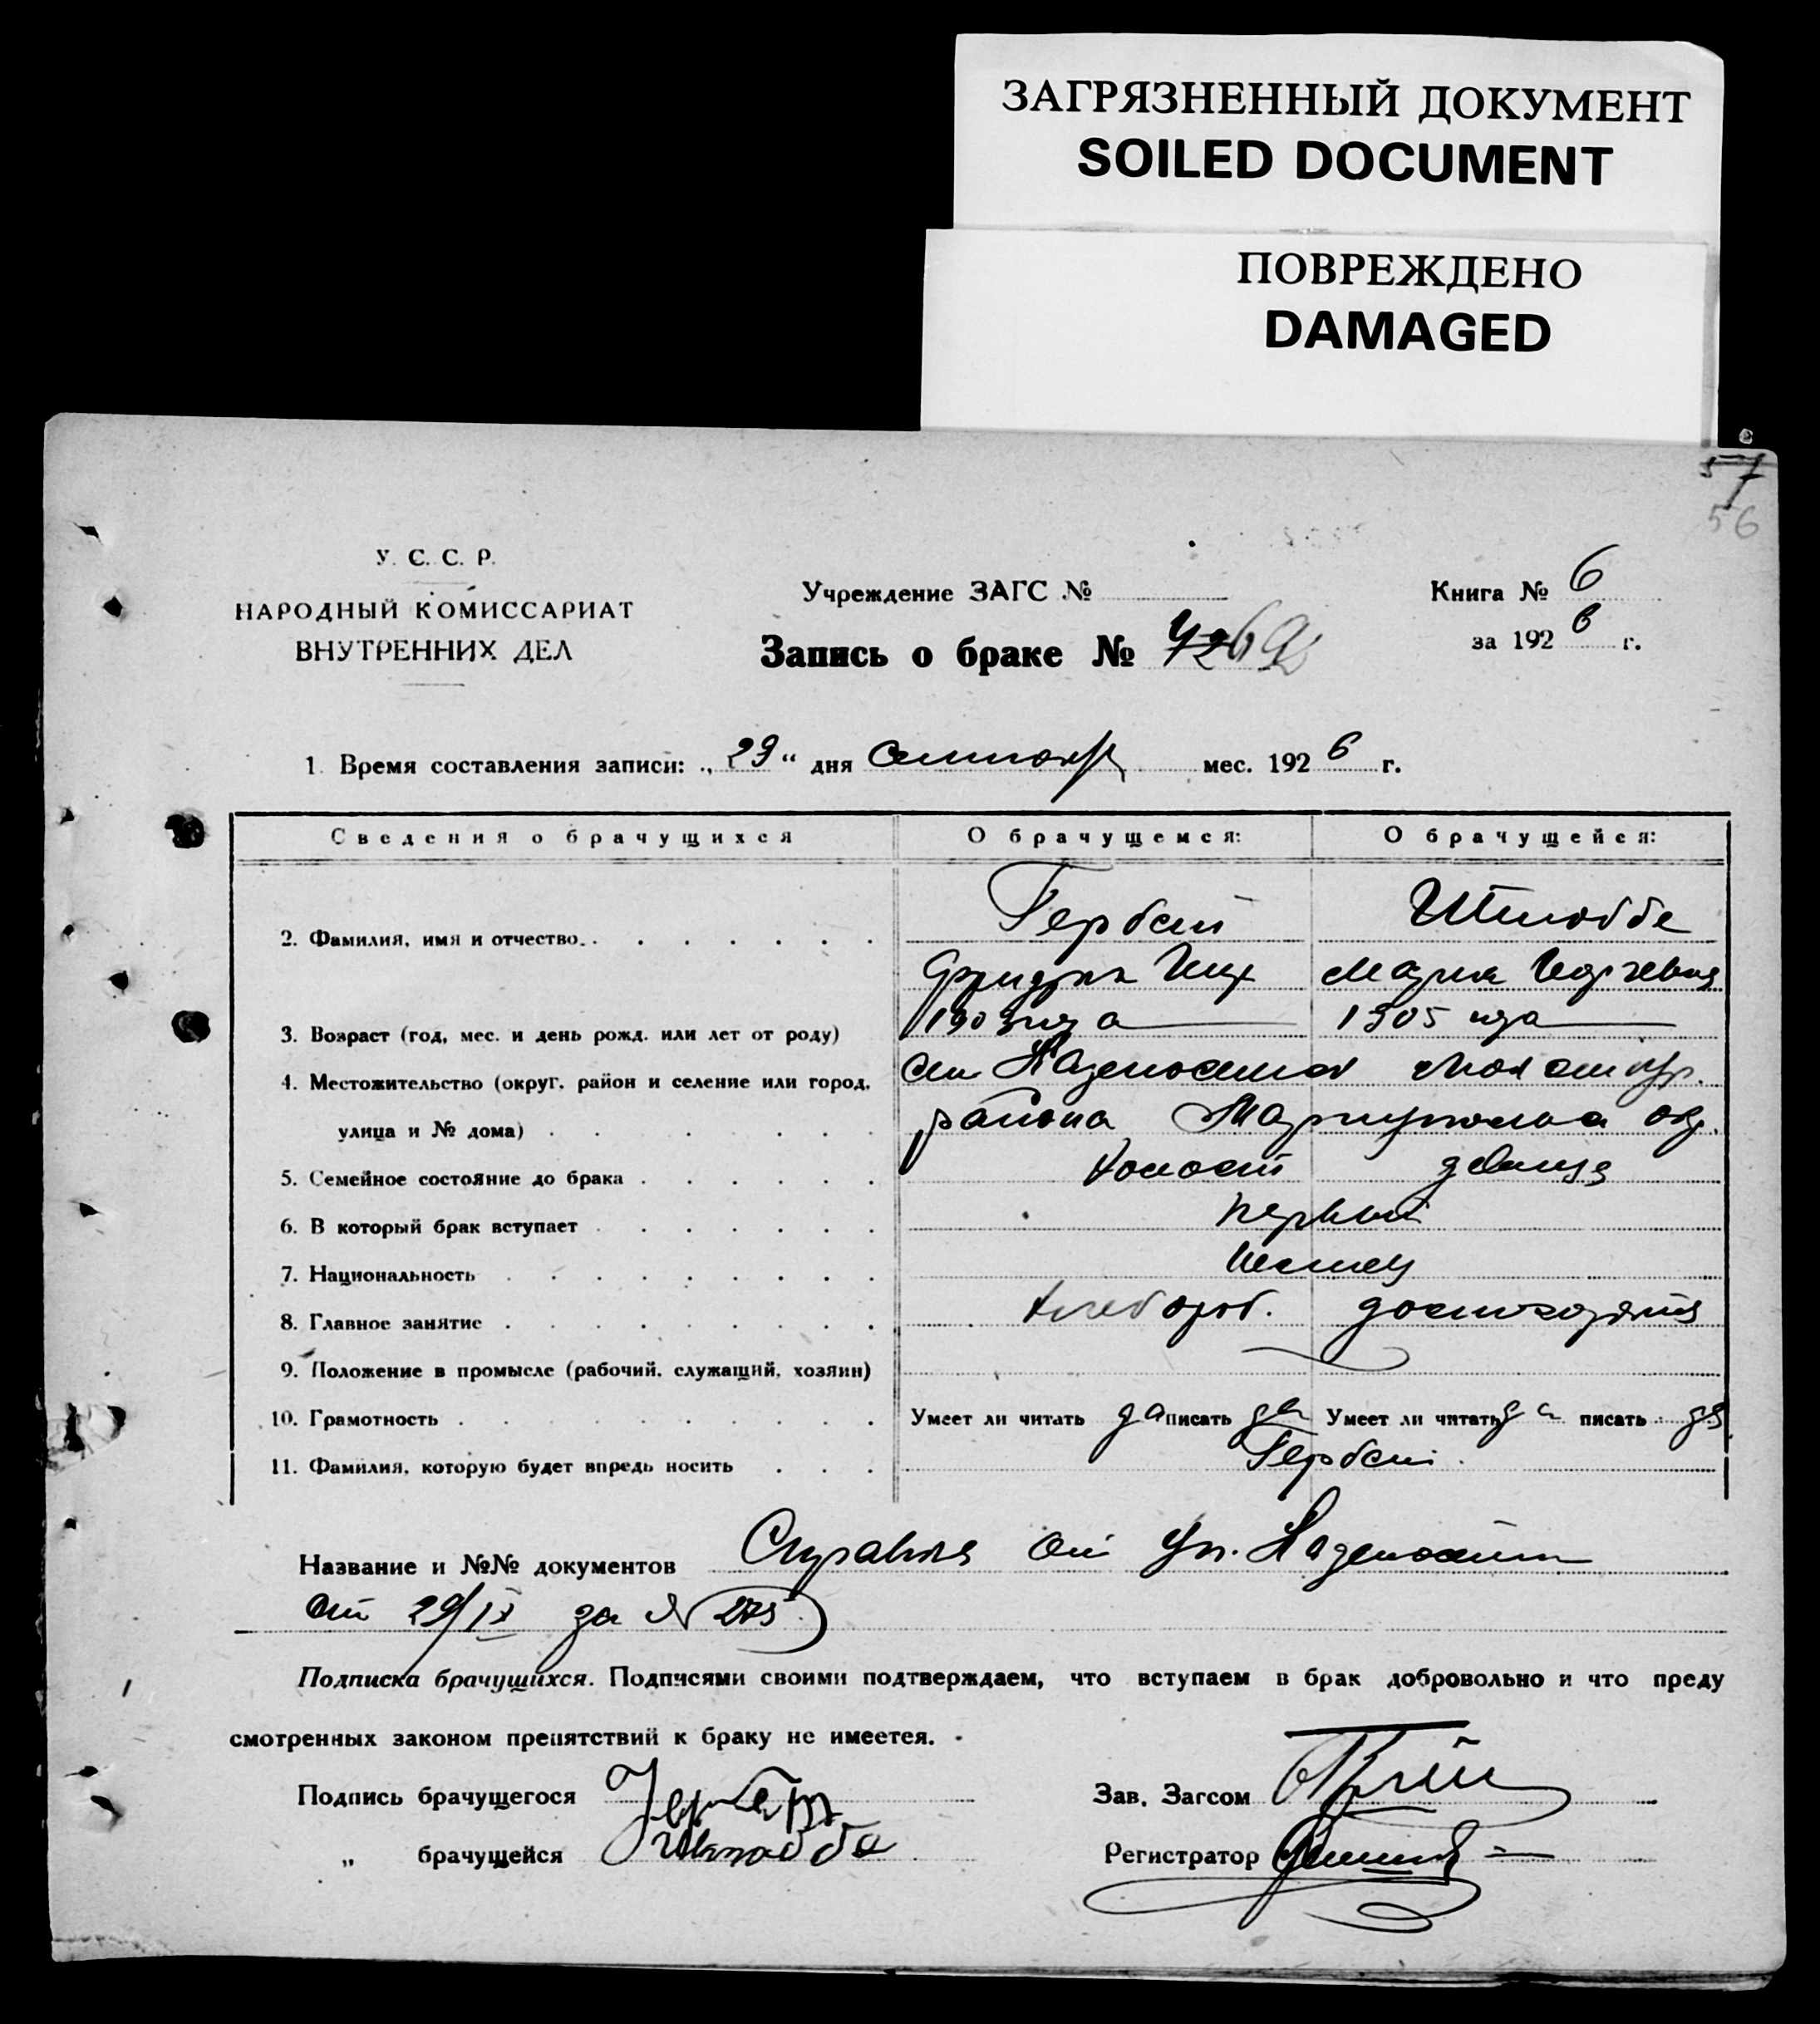 ЗАГРЯЗНЕННЫЙ ДОКУМЕНТ
SOILED DOCUMENT
ПОВРЕЖДЕНО
DAMAGED
57
56
У. С. С. Р.
НАРОДНЫЙ КОМИССАРИАТ
ВНУТРЕННИХ ДЕЛ
Учреждение ЗАГС №
Запись о браке №
Книга № 6
за 1926 г.
1. Время составления записи: „29“ дня сентября мес. 1926 г.
Сведения о брачущихся О брачущемся: О брачущейся:
2. Фамилия, имя и отчество. Гербст Штоббе
Фридрих Мария
3. Возраст (год, мес. и день рожд. или лет от роду) 1903 года 1905 года
4. Местожительство (округ, район и селение или город,
улица и № дома) района Мариупольск окр.
5. Семейное состояние до брака холост девица
6. В который брак вступает первый
7. Национальность Немец
8. Главное занятие хлебороб. домохозяйка
9. Положение в промысле (рабочий, служащий, хозяин)
10. Грамотность Умеет ли читать да писать да Умеет ли читать да писать да
11. Фамилия, которую будет впредь носить Гербст.
Название и №№ документов Справка от уп.
от 29/IX за № 275
Подписка брачущихся. Подписями своими подтверждаем, что вступаем в брак добровольно и что преду
смотренных законом препятствий к браку не имеется.
Подпись брачущегося Гербст
„ брачущейся Штоббе
Зав. Загсом
Регистратор